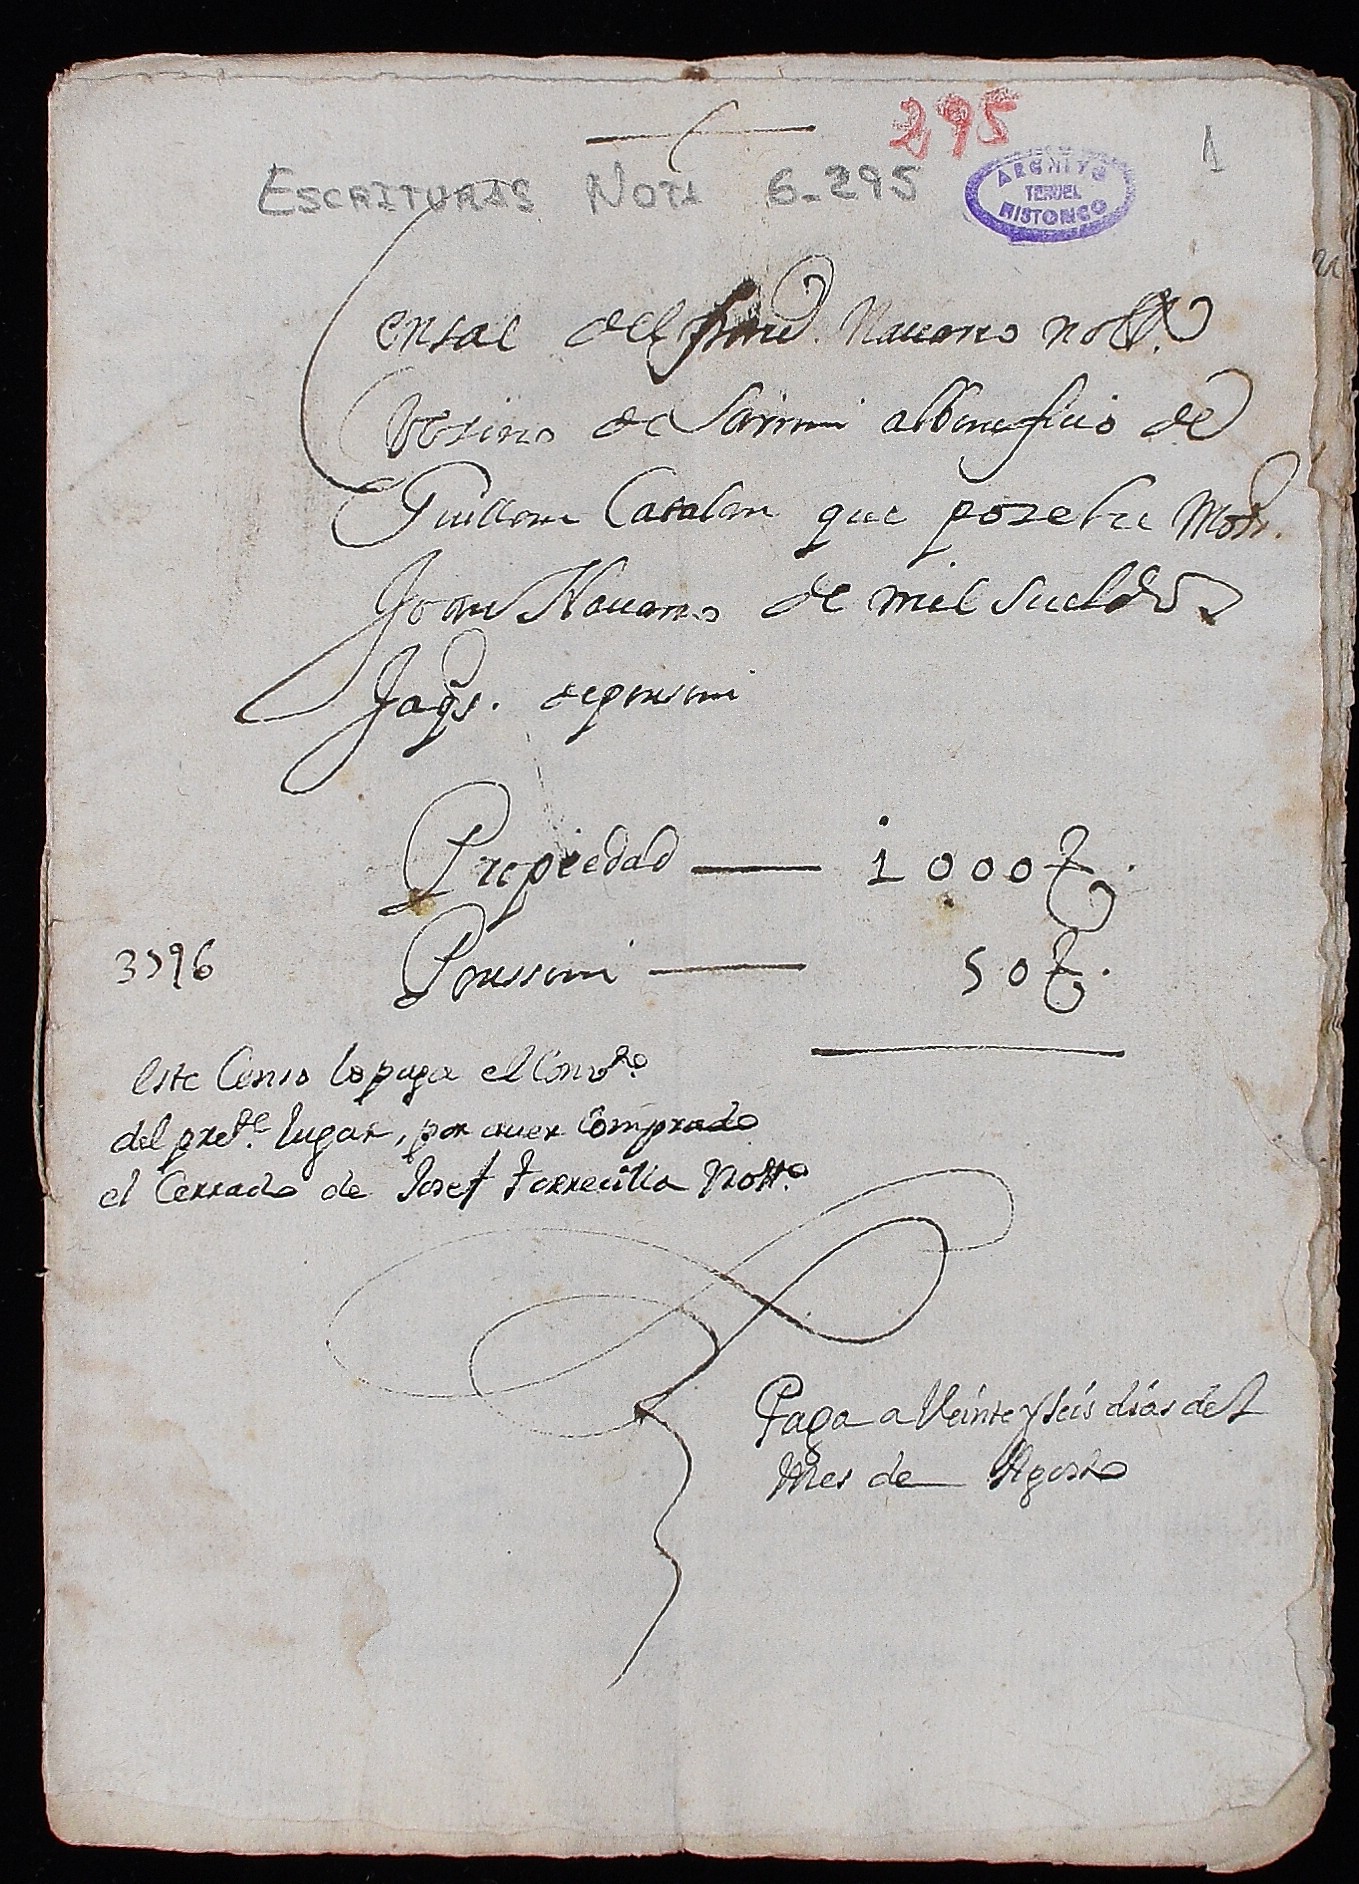 295
1
ESCRITURAS NOTA 6-295
ARCHIVO
TERUEL
HISTORICO
Censal del Navarro nott.º
Vezino de Sarrion al beneficio de
Guillem Catalan que posehe Mosn.
Joan Navarro de mil sueldos
Jaqs. de pension
Propiedad — 1000 ſ.
Penssion — 50 ſ.
3596
Este Censo lo paga el Convto.
del preste. lugar, por aver Comprado
el Cerrado de Josef Torrecilla Notto.
Paga a Veinte y seis dias del
Mes de Agosto